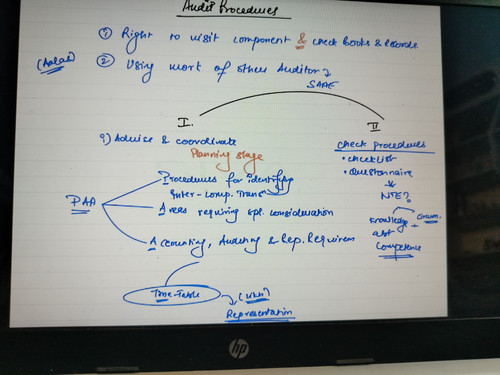 Audit Procedures
① Right to visit component & check Books & records
② Using work of other Auditor
SAAE
I.
II
a) Advise & coordinate
Planning stage
check procedures
• checklist
• Questionnaire
NTE?
PAA
Procedures for identifying
Inter-Comp. Transn
Areas requiring spl. consideration
Accounting, Auditing & Rep. Requirem
Knowledge +
abt
Competence
Time-Table
Representation
hp